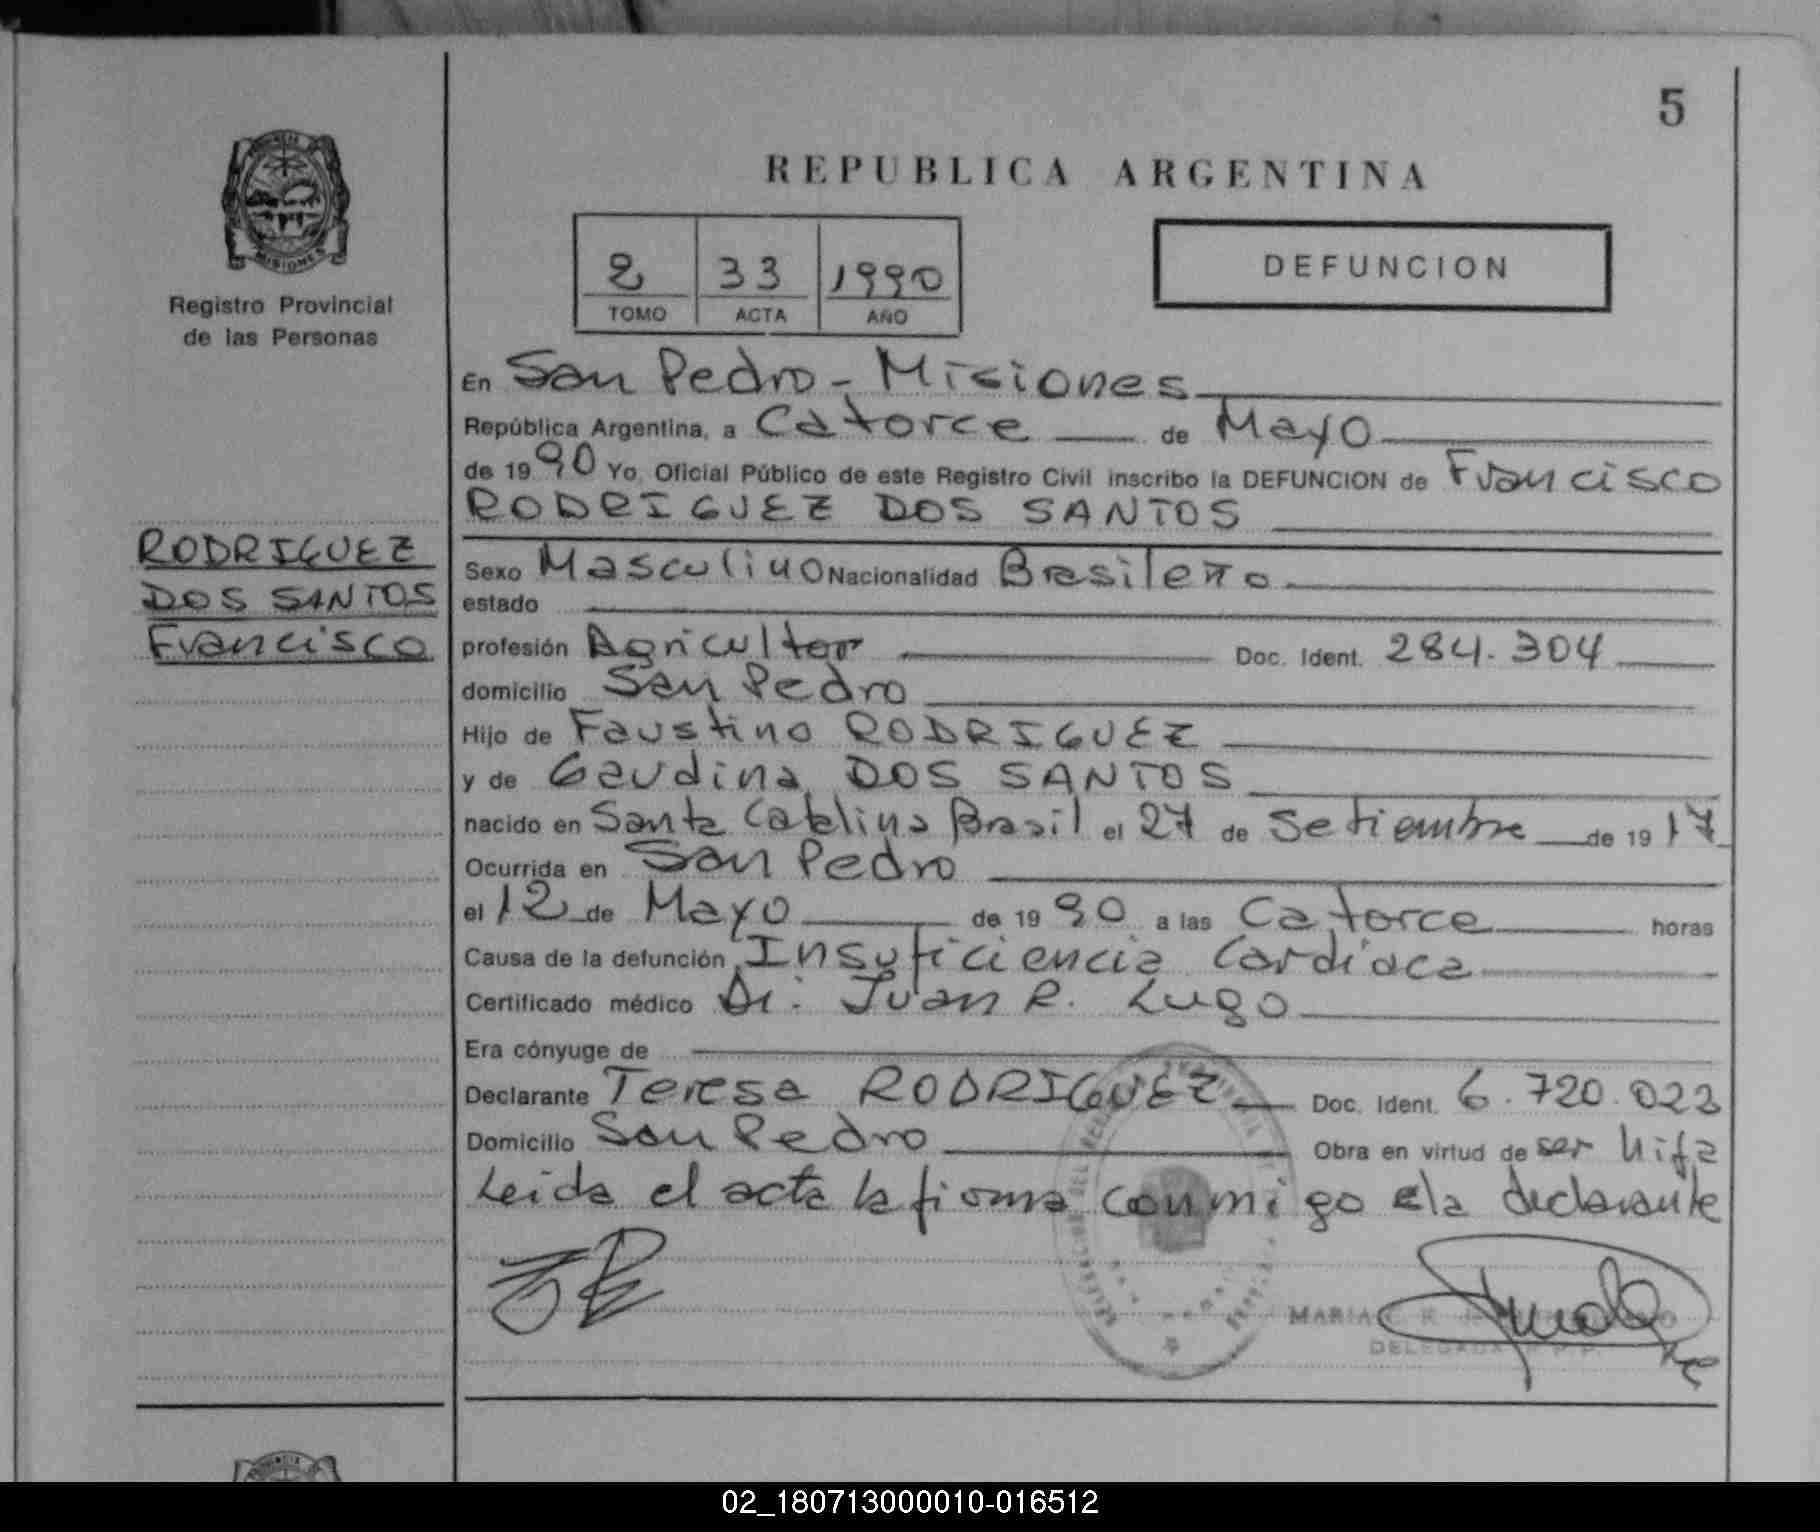 5
REPUBLICA ARGENTINA
PROVINCIA
MISIONES
Registro Provincial
de las Personas
2 33 1990
TOMO ACTA AÑO
DEFUNCION
En San Pedro - Misiones
República Argentina, a Catorce de Mayo
de 1990 Yo, Oficial Público de este Registro Civil inscribo la DEFUNCION de Francisco
RODRIGUEZ DOS SANTOS
RODRIGUEZ
DOS SANTOS
Francisco
Sexo Masculino Nacionalidad Brasileño
estado
profesión Agricultor Doc. Ident. 284.304
domicilio San Pedro
Hijo de Faustino RODRIGUEZ
y de Gaudina DOS SANTOS
nacido en Santa Catalina Brasil el 27 de Setiembre de 1917
Ocurrida en San Pedro
el 12 de Mayo de 1990 a las Catorce horas
Causa de la defunción Insuficiencia Cardiaca
Certificado médico Dr. Juan R. Lugo
Era cónyuge de
Declarante Teresa RODRIGUEZ Doc. Ident. 6.720.023
Domicilio San Pedro Obra en virtud de ser hija
Leida el acta la firma conmigo ela declarante
MARIA
DELEGADA R.P.P.
PROVINCIA
02_180713000010-016512